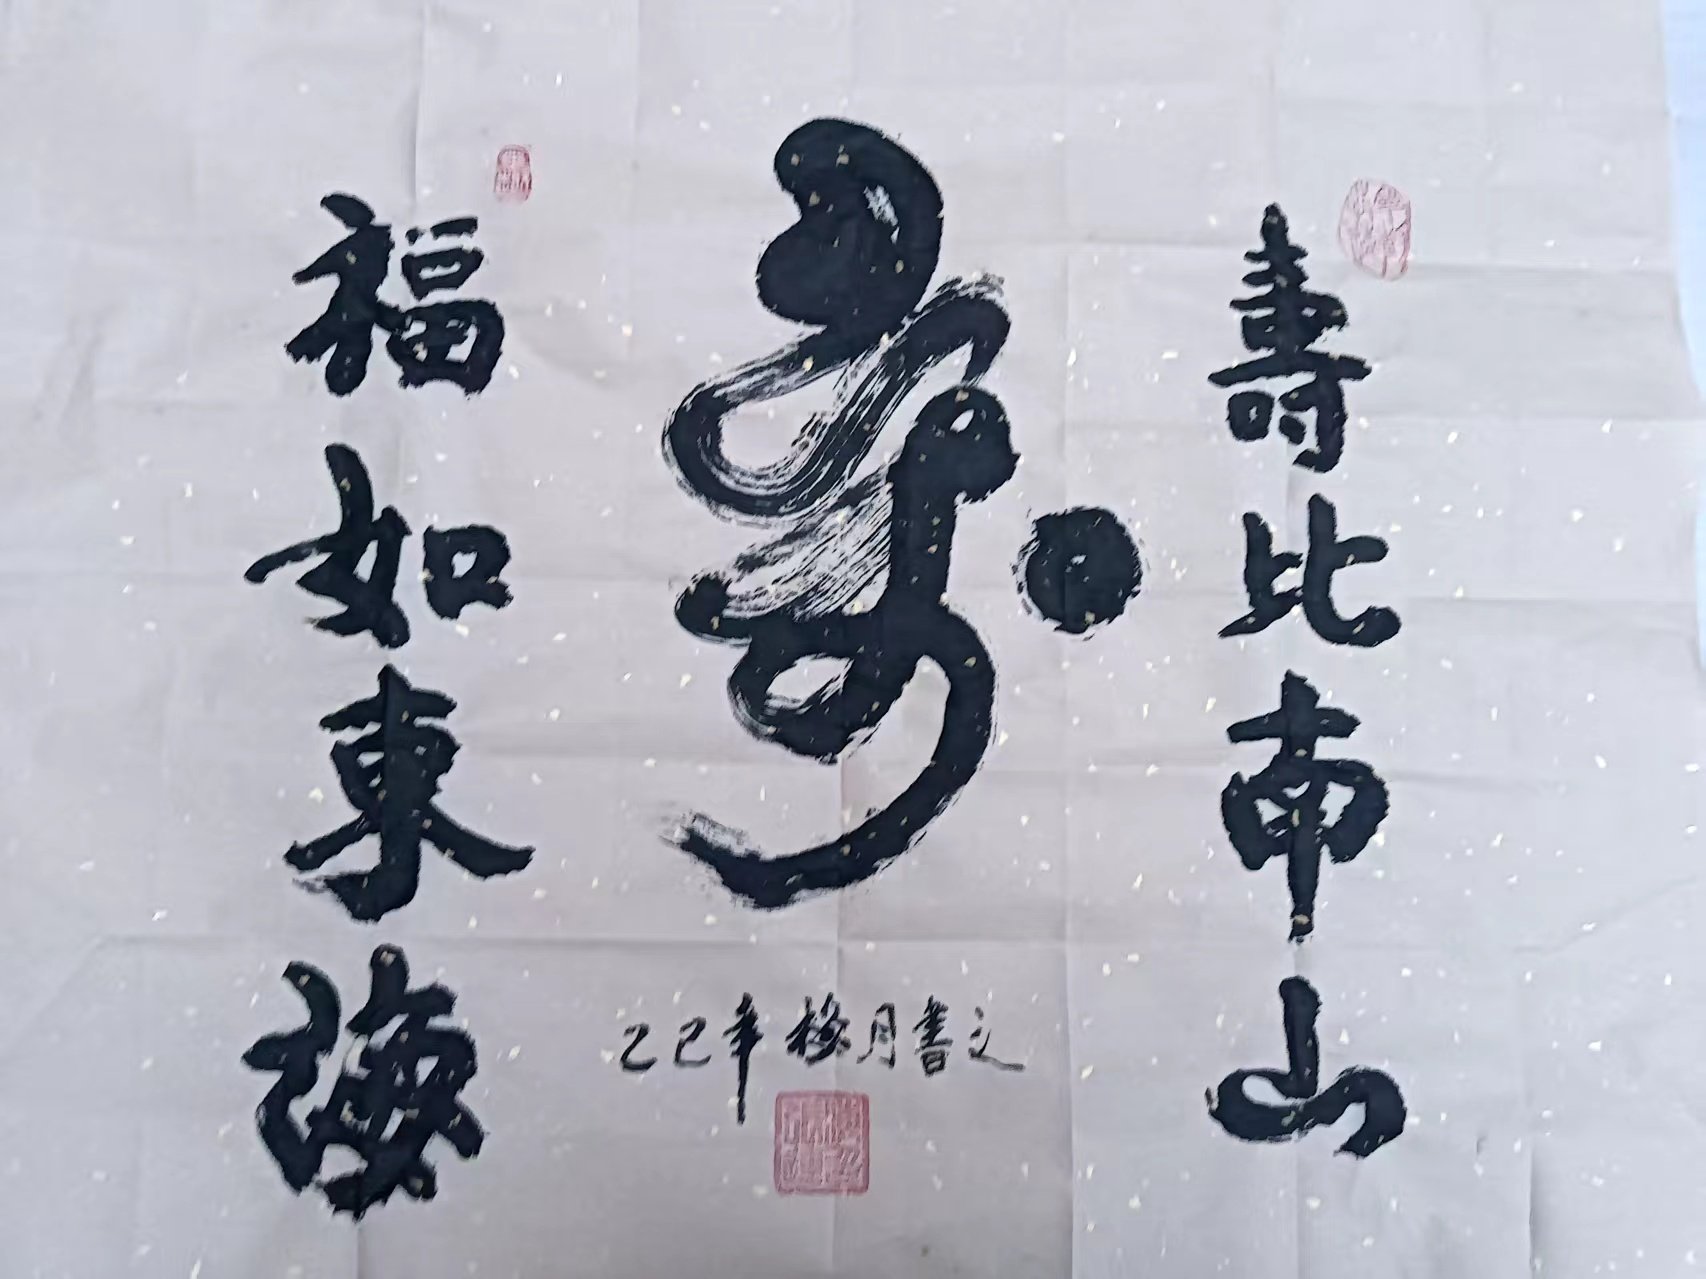 壽比南山
寿
福如東海
乙巳年梅月書文